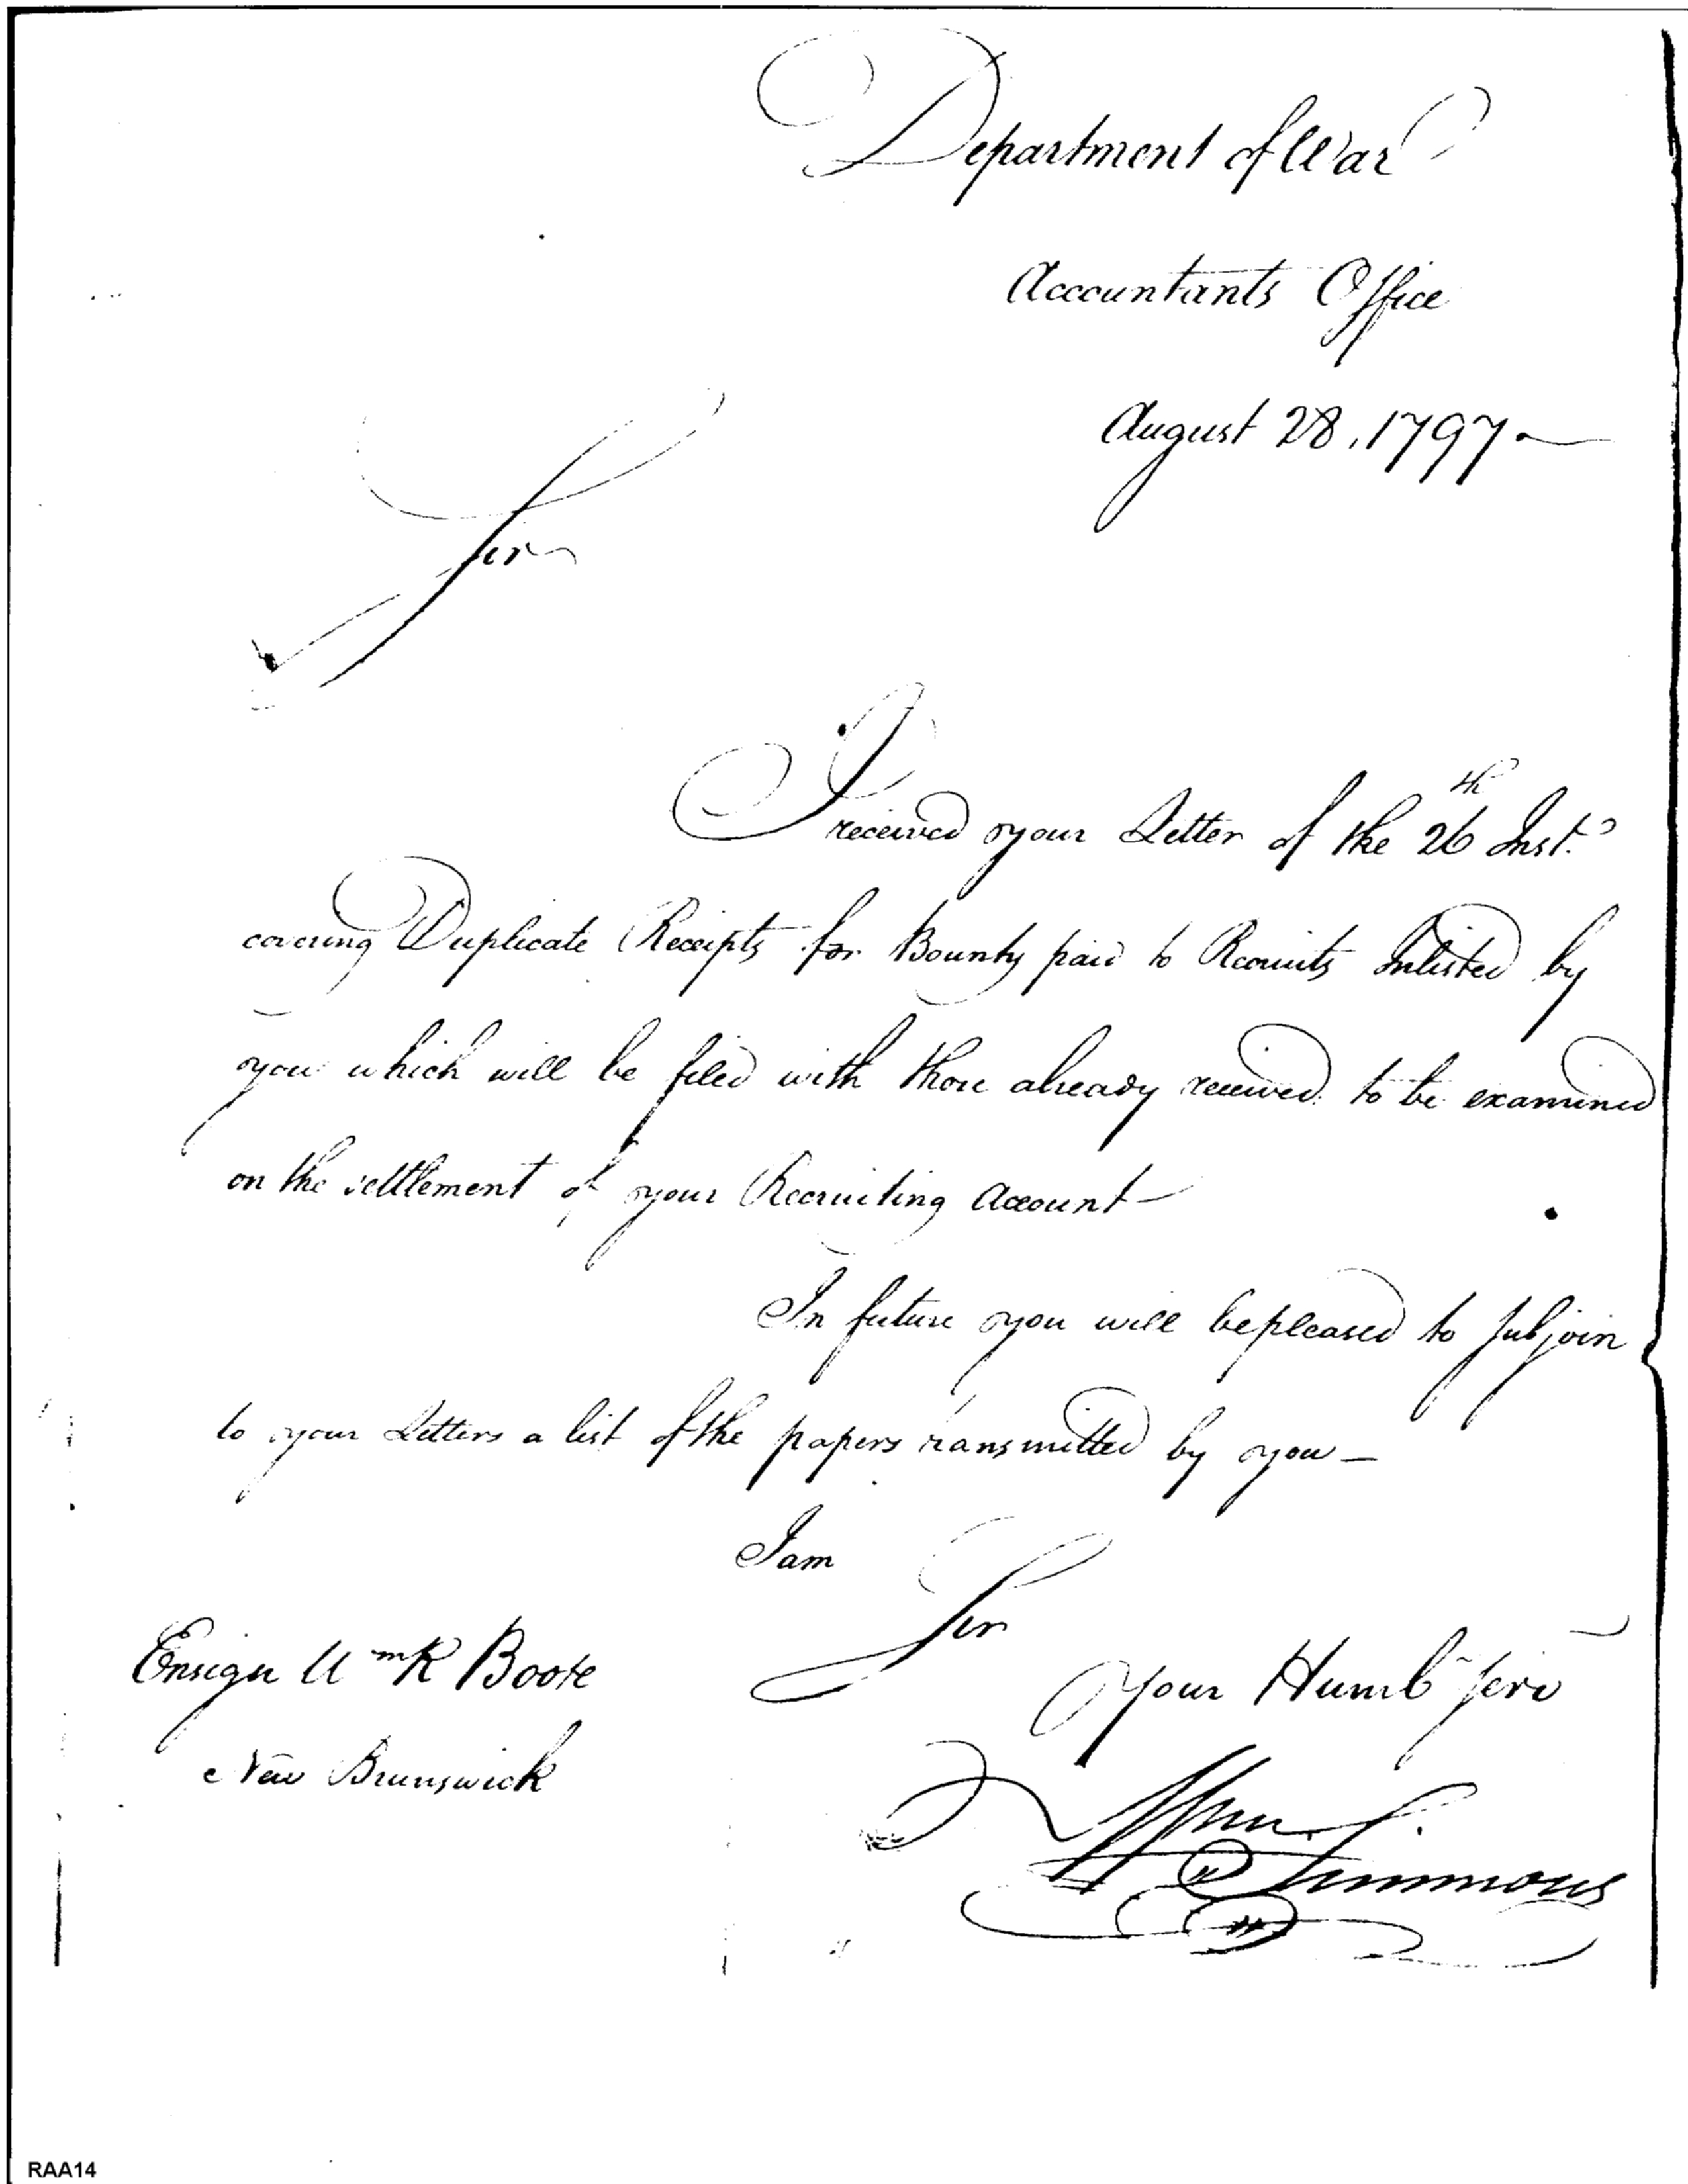 Department of War
Accountants Office
August 28, 1797 —
Sir
I received your Letter of the 26th Inst.
covering Duplicate Receipts for Bounty paid to Recruits Inlisted by
you which will be filed with those already received to be examined
on the settlement of your Recruiting Account —
In future you will be pleased to subjoin
to your Letters a list of the papers transmitted by you —
I am
Sir
Your Humb Serv
Ensign Wm R Boote
New Brunswick
Wm Simmons
RAA14